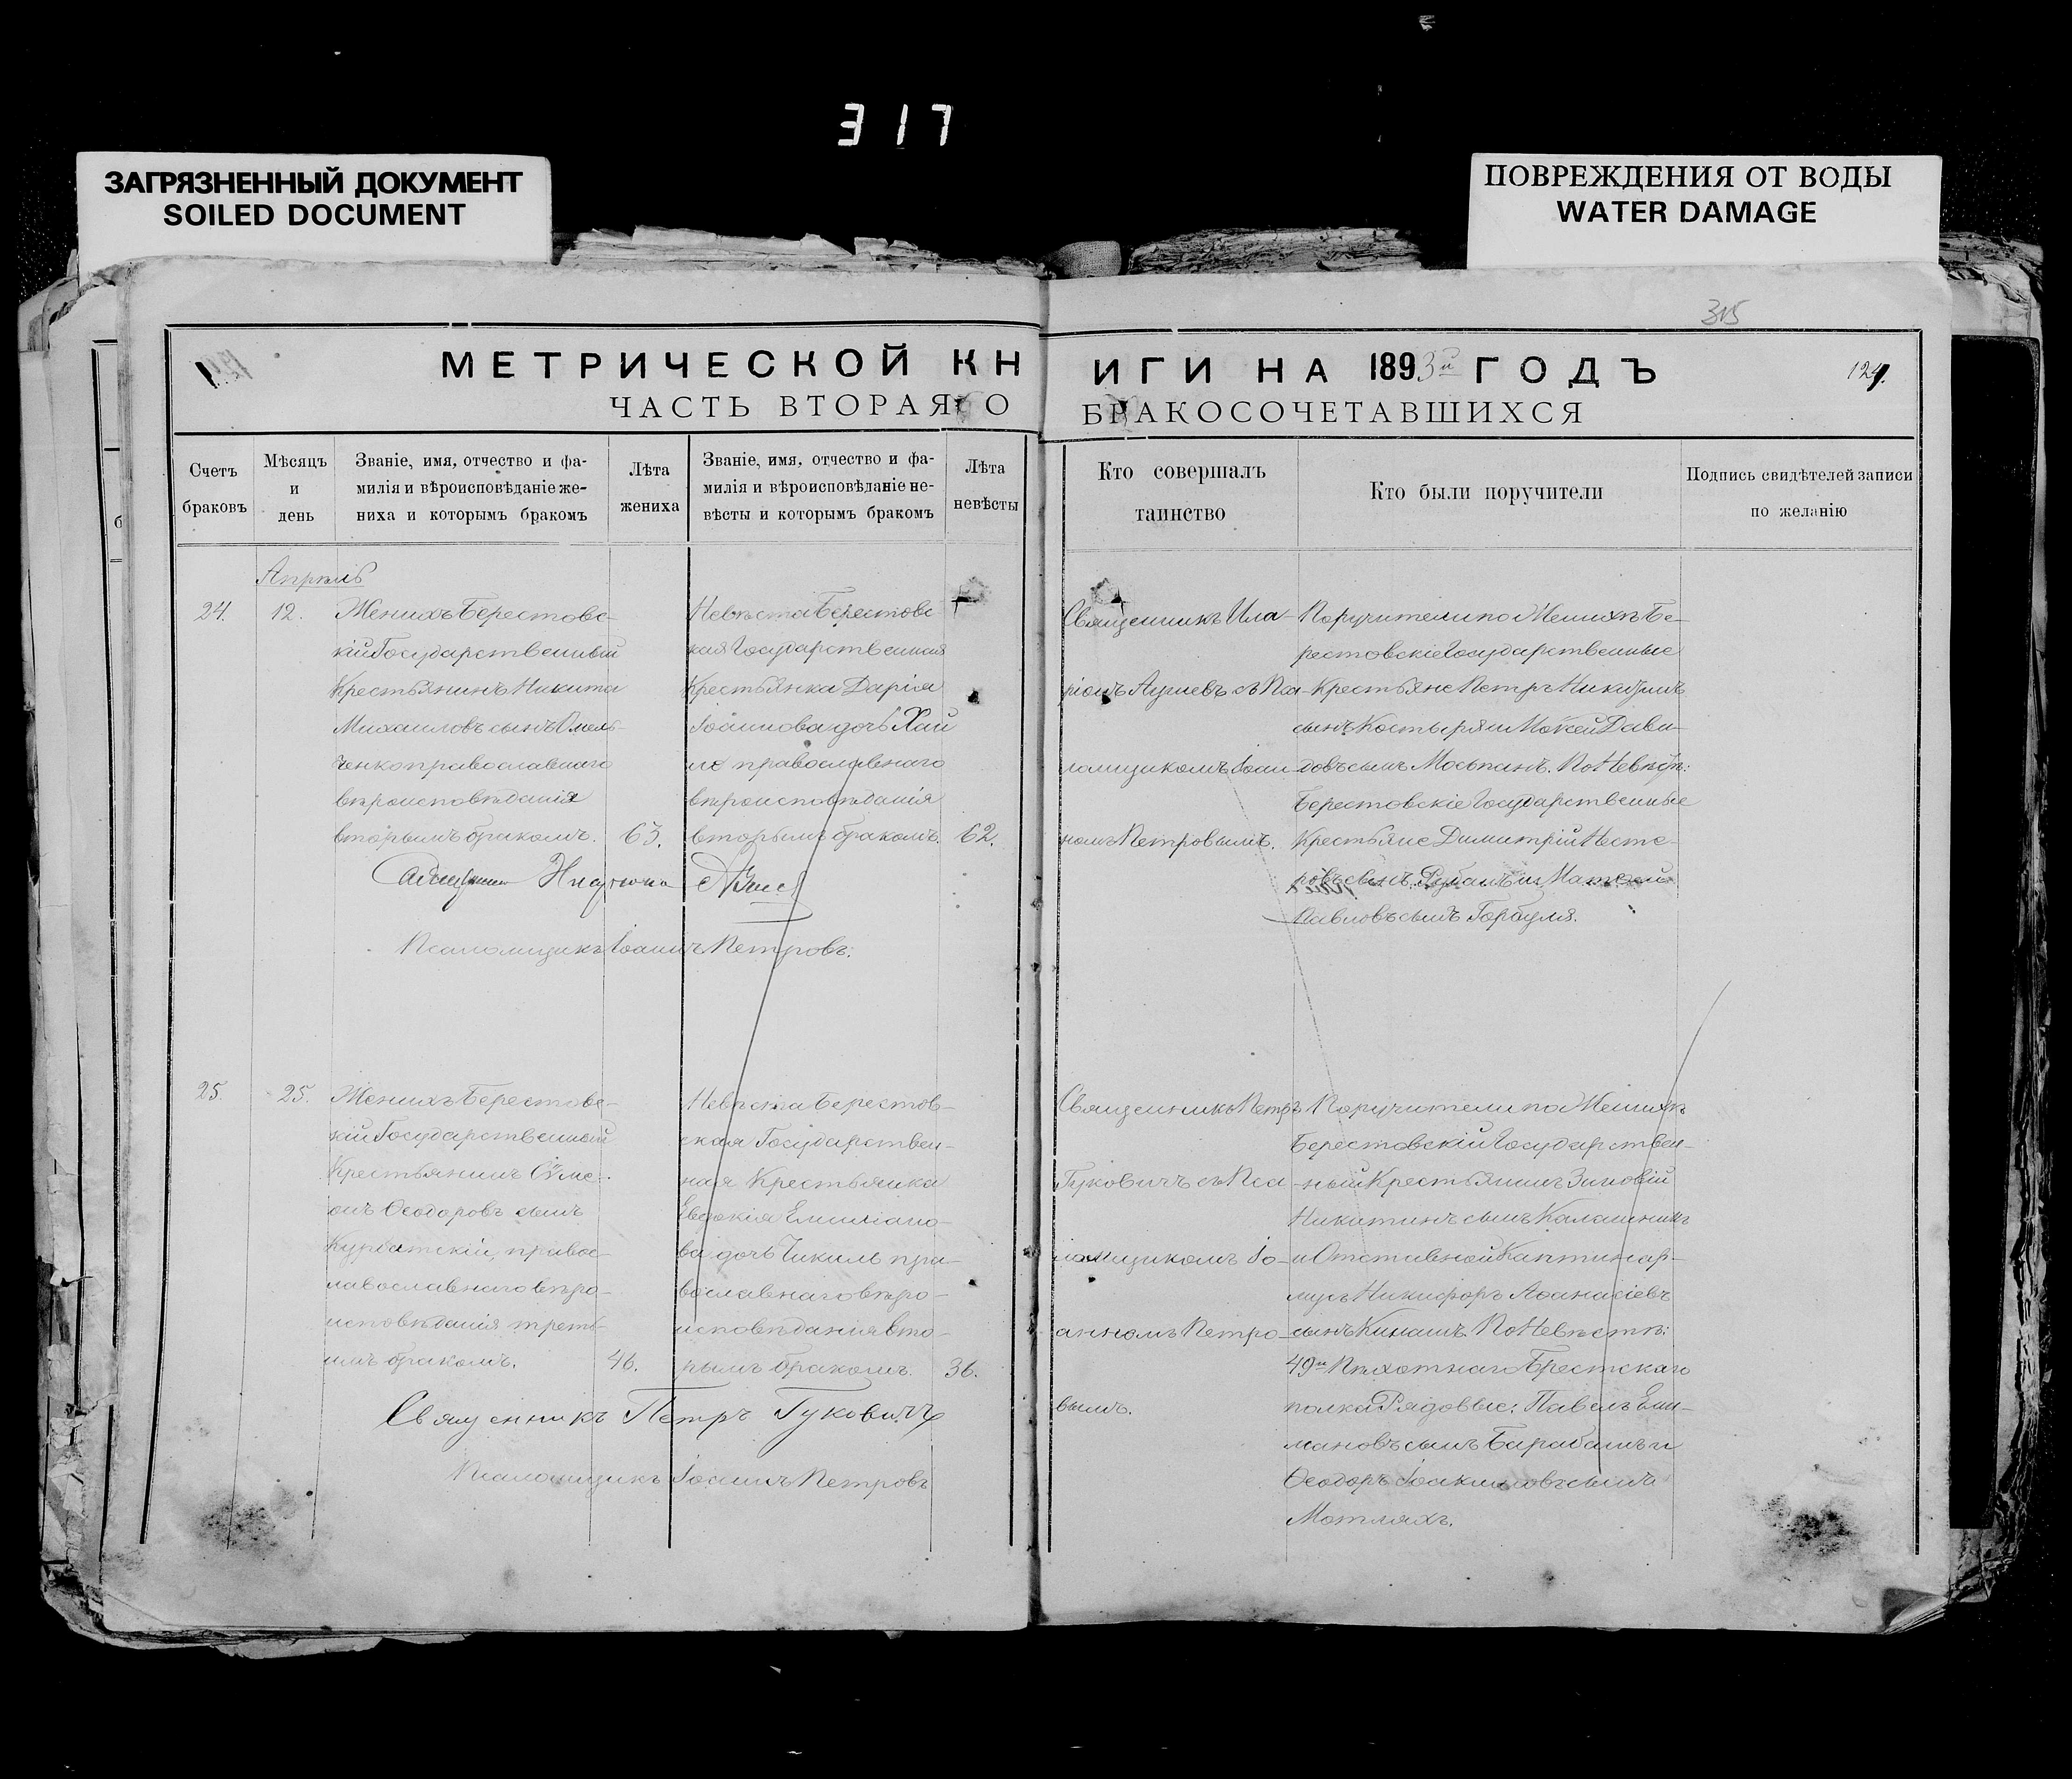 317
ЗАГРЯЗНЕННЫЙ ДОКУМЕНТ
SOILED DOCUMENT
ПОВРЕЖДЕНИЯ ОТ ВОДЫ
WATER DAMAGE
315
МЕТРИЧЕСКОЙ КНИГИ НА 1893й ГОДЪ
124.
ЧАСТЬ ВТОРАЯ О БРАКОСОЧЕТАВШИХСЯ
Счетъ
браковъ
Мѣсяцъ
и
день
Званіе, имя, отчество и фа-
милія и вѣроисповѣданіе же-
ниха и которымъ бракомъ
Лѣта
жениха
Званіе, имя, отчество и фа-
милія и вѣроисповѣданіе не-
вѣсты и которымъ бракомъ
Лѣта
невѣсты
Кто совершалъ
таинство
Кто были поручители
Подпись свидѣтелей записи
по желанію
Апрѣль
24.
12.
Женихъ Берестовс-
кій Государственный
Крестьянинъ Никита
Михаиловъ сынъ Омель-
ченко православнаго
вѣроисповѣданія
вторымъ бракомъ.
63.
Невѣста Берестовс-
кая Государственная
Крестьянка Дарія
Іоаннова дочь
православнаго
вѣроисповѣданія
вторымъ бракомъ.
62.
Священникъ Ила-
ріонъ съ Пса-
ломщикомъ Іоан-
номъ Петровымъ.
Поручители по Женихѣ Бе-
рестовскіе Государственные
Крестьяне Петръ Никитинъ
сынъ Костыря и Мокей Дави-
довъ сынъ Моспанъ. По Невѣстѣ:
Берестовскіе Государственные
Крестьяне Димитрій Несте-
ровъ сынъ и
Павловъ сынъ Горбуля.
Псаломщикъ Іоаннъ Петровъ.
25.
25.
Женихъ Берестовс-
кій Государственный
Крестьянинъ Сѵме-
онъ Ѳеодоровъ сынъ
Курбатскій, правос-
лавославнаго вѣро-
исповѣданія треть-
имъ бракомъ.
46.
Невѣста Берестов-
ская Государствен-
ная Крестьянка
Евдокія Емиліано-
ва дочь Чикиль пра-
вославнаго вѣро-
исповѣданія вто-
рымъ бракомъ.
36.
Священникъ Петръ
Гуковичъ съ Пса-
ломщикомъ Іо-
анномъ Петро-
вымъ.
Поручители по Женихѣ
Берестовскій Государствен-
ный Крестьянинъ Зиновій
Никитинъ сынъ Калашникъ
и Отставной Каптинар-
мусъ Никифоръ Аѳанасіевъ
сынъ Кинашъ. По Невѣстѣ:
49го Пѣхотнаго Брестскаго
полка Рядовые: Павелъ Ели-
мановъ сынъ Барабашъ и
Ѳеодоръ Іоакимовъ сынъ
Мотляхъ.
Священникъ Петръ Гуковичъ
Псаломщикъ Іоаннъ Петровъ